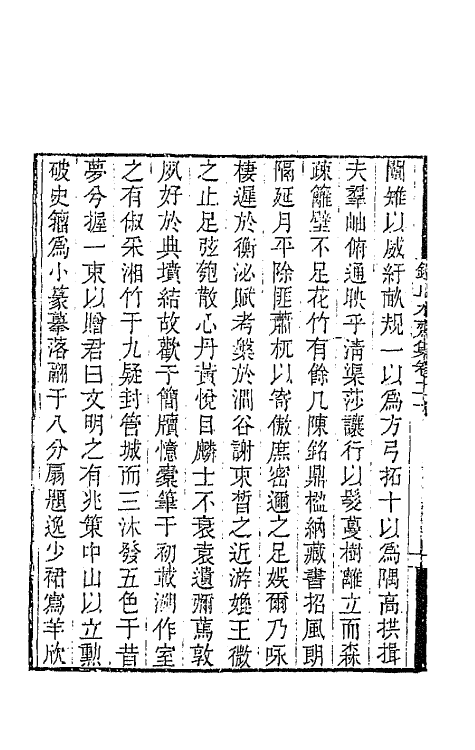 闢雉以威紆畝規一以為方弓拓十以為隅高拱揖
夫羣岫俯通映乎清渠莎讓行以髮蔓樹離立而森
疎籬壁不足花竹有餘几陳銘鼎檻納藏書招風明
隔延月平除匪蕭杌以寄傲庶密邇之足娛爾乃咏
棲遲於衡泌賦考槃於澗谷謝束晳之近游媲王微
之止足弦匏散心丹黃悅目麟士不衰袁遺彌篤敦
夙好於典墳結故歡于簡牘憶橐筆于初載溯作室
之有俶采湘竹于九疑封管城而三沐發五色于昔
夢兮握一束以贈君曰文明之有兆策中山以立勳
破史籀為小篆摹落翮于八分扇題逸少裙寫羊欣